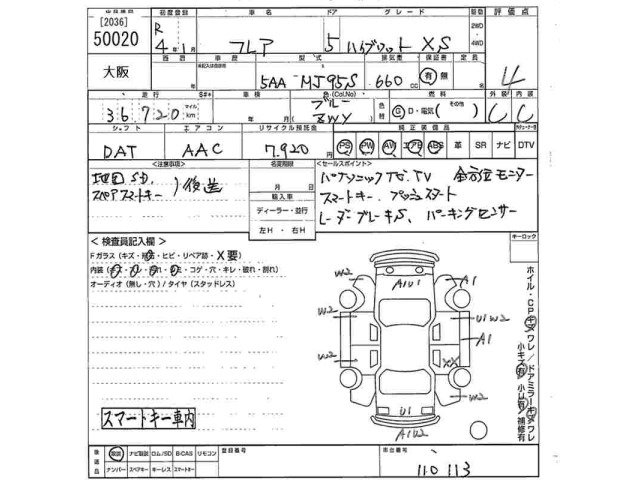 [2036]
50020
初度登録
車名
ドア
グレード
駆動
評価点
R
4年1月
フレア
5
ハイブリット XS
2WD
4WD
4
大阪
車歴
型式
排気量
保証書
定員
5AA MJ95S
660
CC
有・無
走行
S#*
車検
色(Col.No)
燃料
外装
内装
36,720
マイル
km
年
月
ブルー
ZWY
色替
G・D・電気(その他)
C
C
シフト
エアコン
リサイクル預託金
純正装備品
DAT
AAC
7.920
PS
PW
AW
エアB
ABS
革
SR
ナビ
DTV
<注意事項>
名変期限
<セールスポイント>
地図SD、
スペアスマートキー
)後送
月
日
輸入車
ディーラー・並行
左H・右H
パナソニックナビ、TV 全方位モニター
スマートキー、プッシュスタート
レーダーブレーキS、パーキングセンサー
<検査員記入欄>
キーロック
Fガラス(キズ・飛石・ヒビ・リペア跡・X要)
オーディオ(無し・穴)/タイヤ(スタッドレス)
W2
A1U1
A1
W2
U1W2
A1
W2
XX
W2
U1
A1U2
スマートキー車内
後送品
取説
ナビ取説
ロム/SD
B-CAS
リモコン
ナンバー
スペアキー
キーレス
スマートキー
登録番号
車台番号
110113